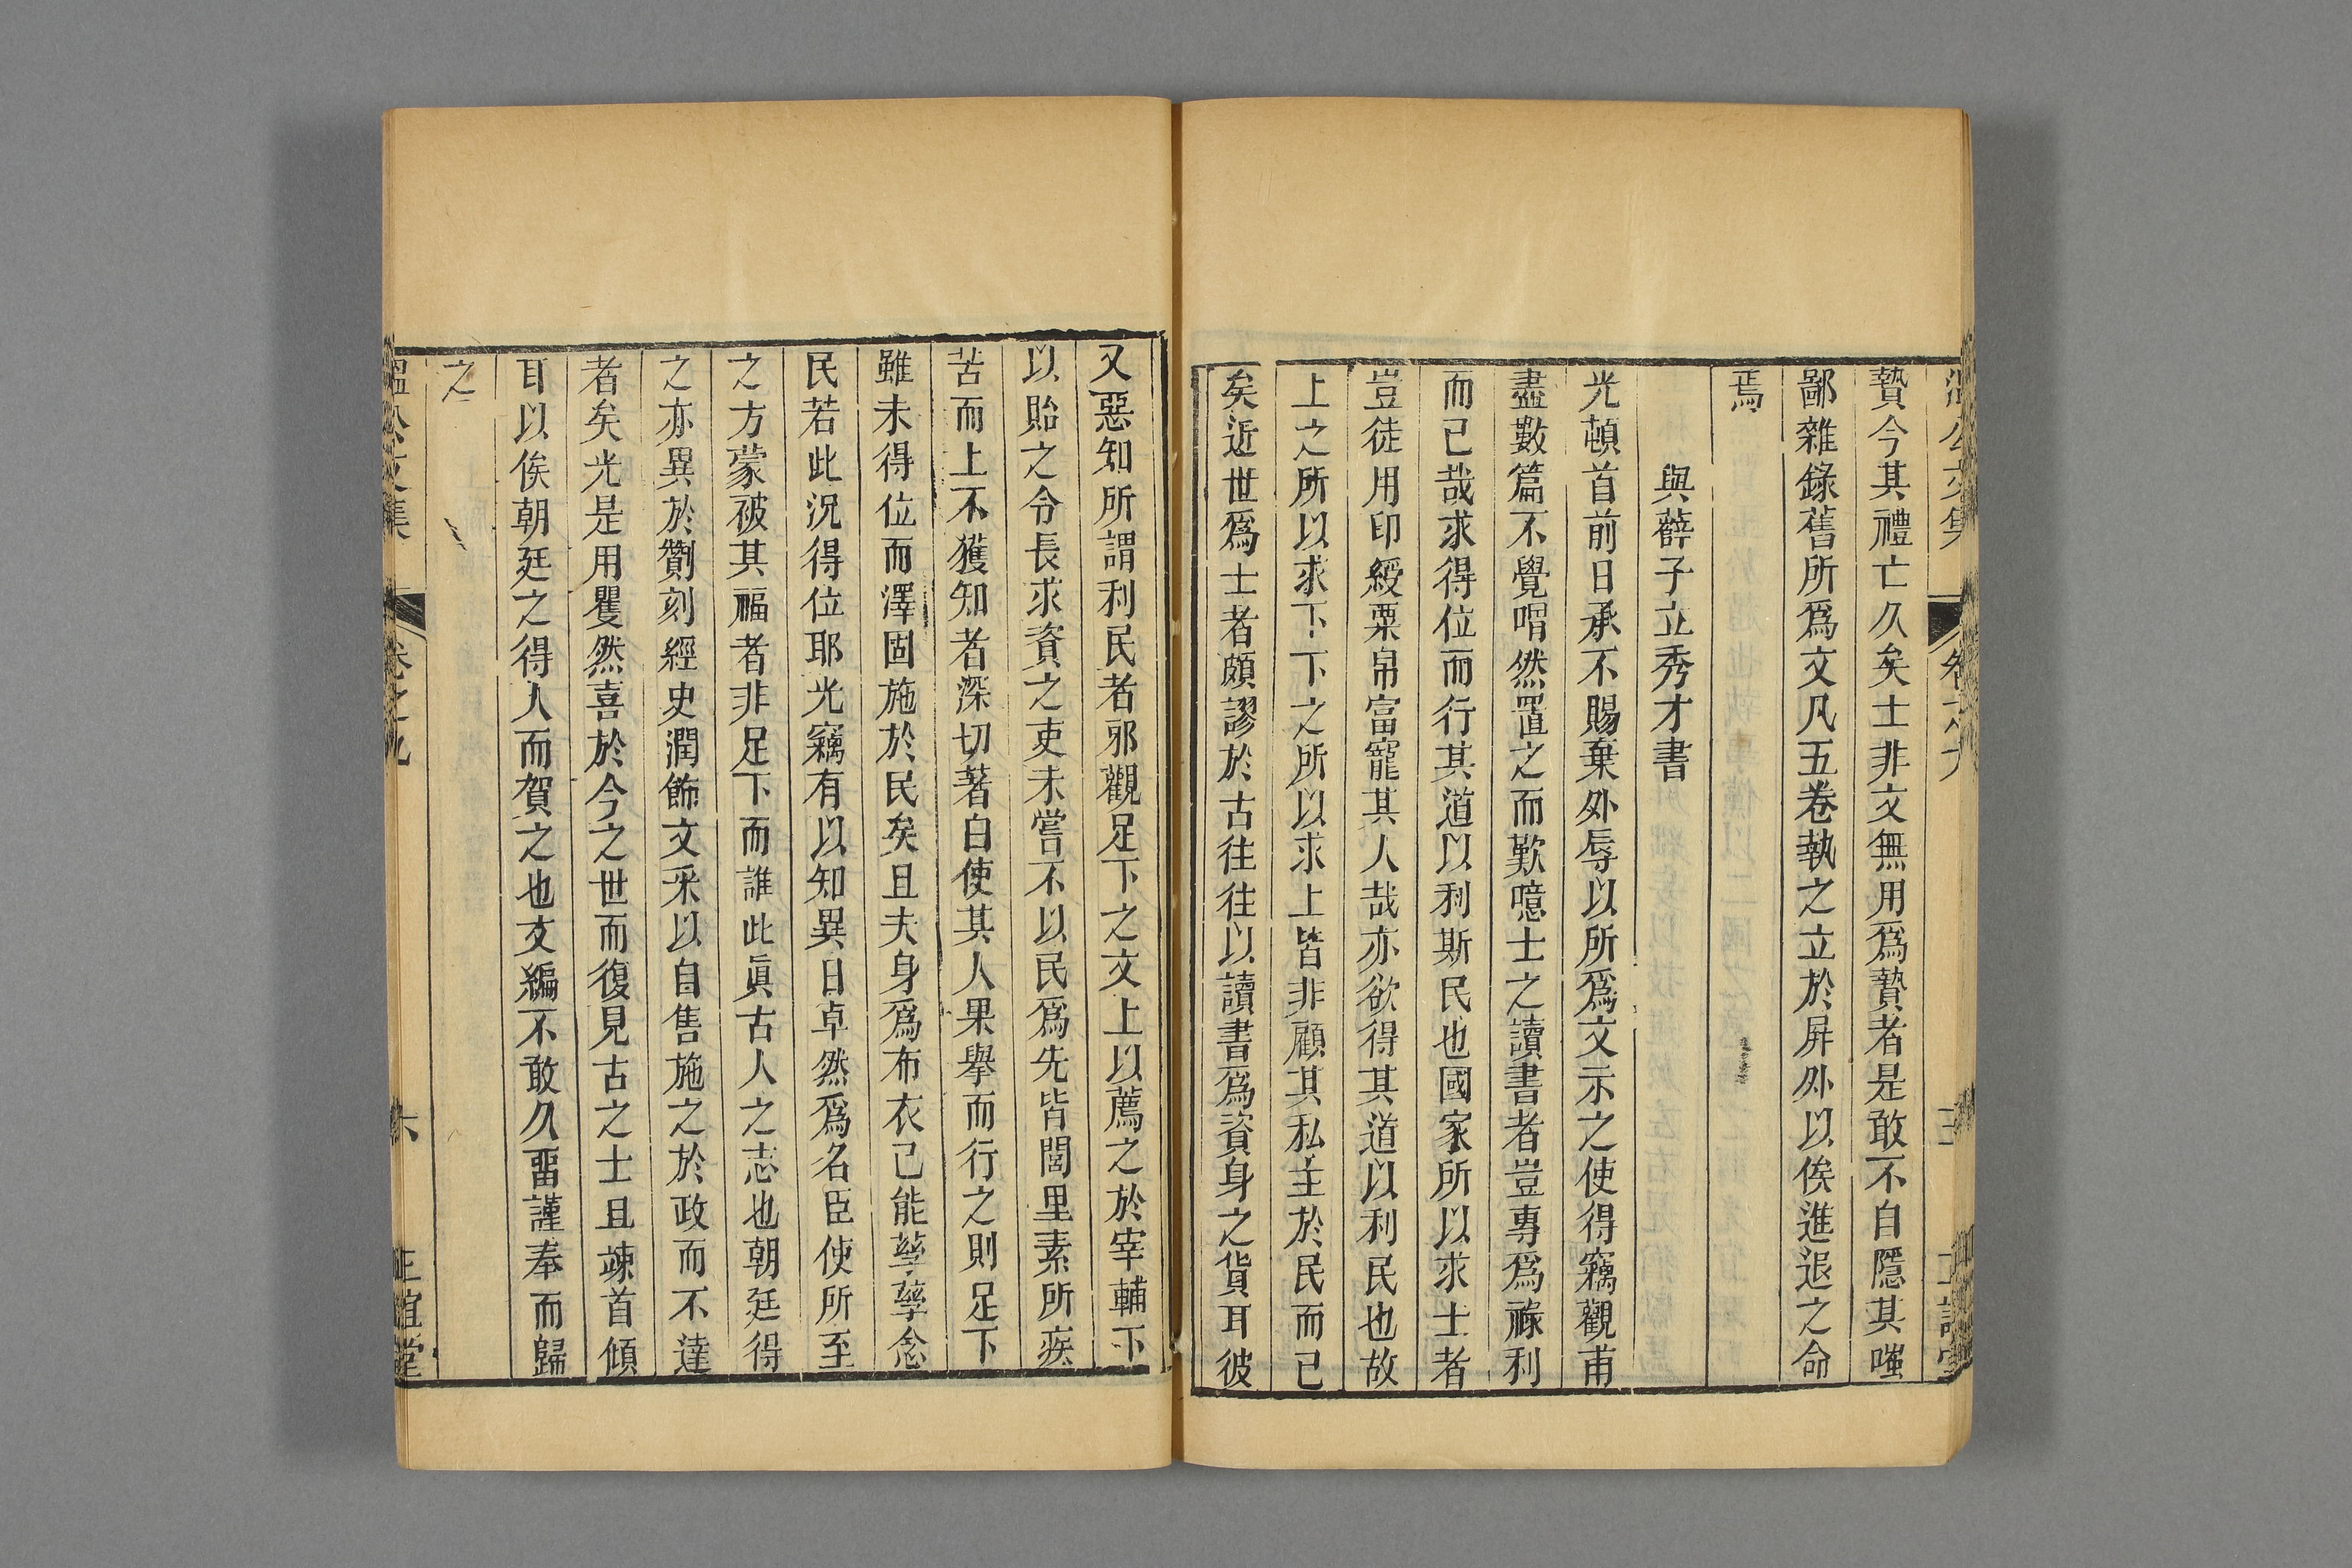 贄今其禮亡久矣士非文無用爲贄者是敢不自隱其嗤
鄙雜錄舊所爲文凡五卷執之立於屏外以俟進退之命
焉
與薛子立秀才書
光頓首前日承不賜棄外辱以所爲文示之使得竊觀甫
盡數篇不覺喟然置之而歎噫士之讀書者豈專爲祿利
而已哉求得位而行其道以利斯民也國家所以求士者
豈徒用印綬粟帛富寵其人哉亦欲得其道以利民也故
上之所以求下下之所以求上皆非顧其私主於民而已
矣近世爲士者頗謬於古往往以讀書爲資身之貨耳彼
又惡知所謂利民者邪觀足下之文上以薦之於宰輔下
以貽之令長求資之吏未嘗不以民爲先皆閭里素所疾
苦而上不獲知者深切著白使其人果舉而行之則足下
雖未得位而澤固施於民矣且夫身爲布衣已能孳孳念
民若此況得位耶光竊有以知異日卓然爲名臣使所至
之方蒙被其福者非足下而誰此眞古人之志也朝廷得
之亦異於劗刻經史潤飾文采以自售施之於政而不達
者矣光是用瞿然喜於今之世而復見古之士且竦首傾
耳以俟朝廷之得人而賀之也文編不敢久畱謹奉而歸
之
溫公文集
卷之九
六
正誼堂